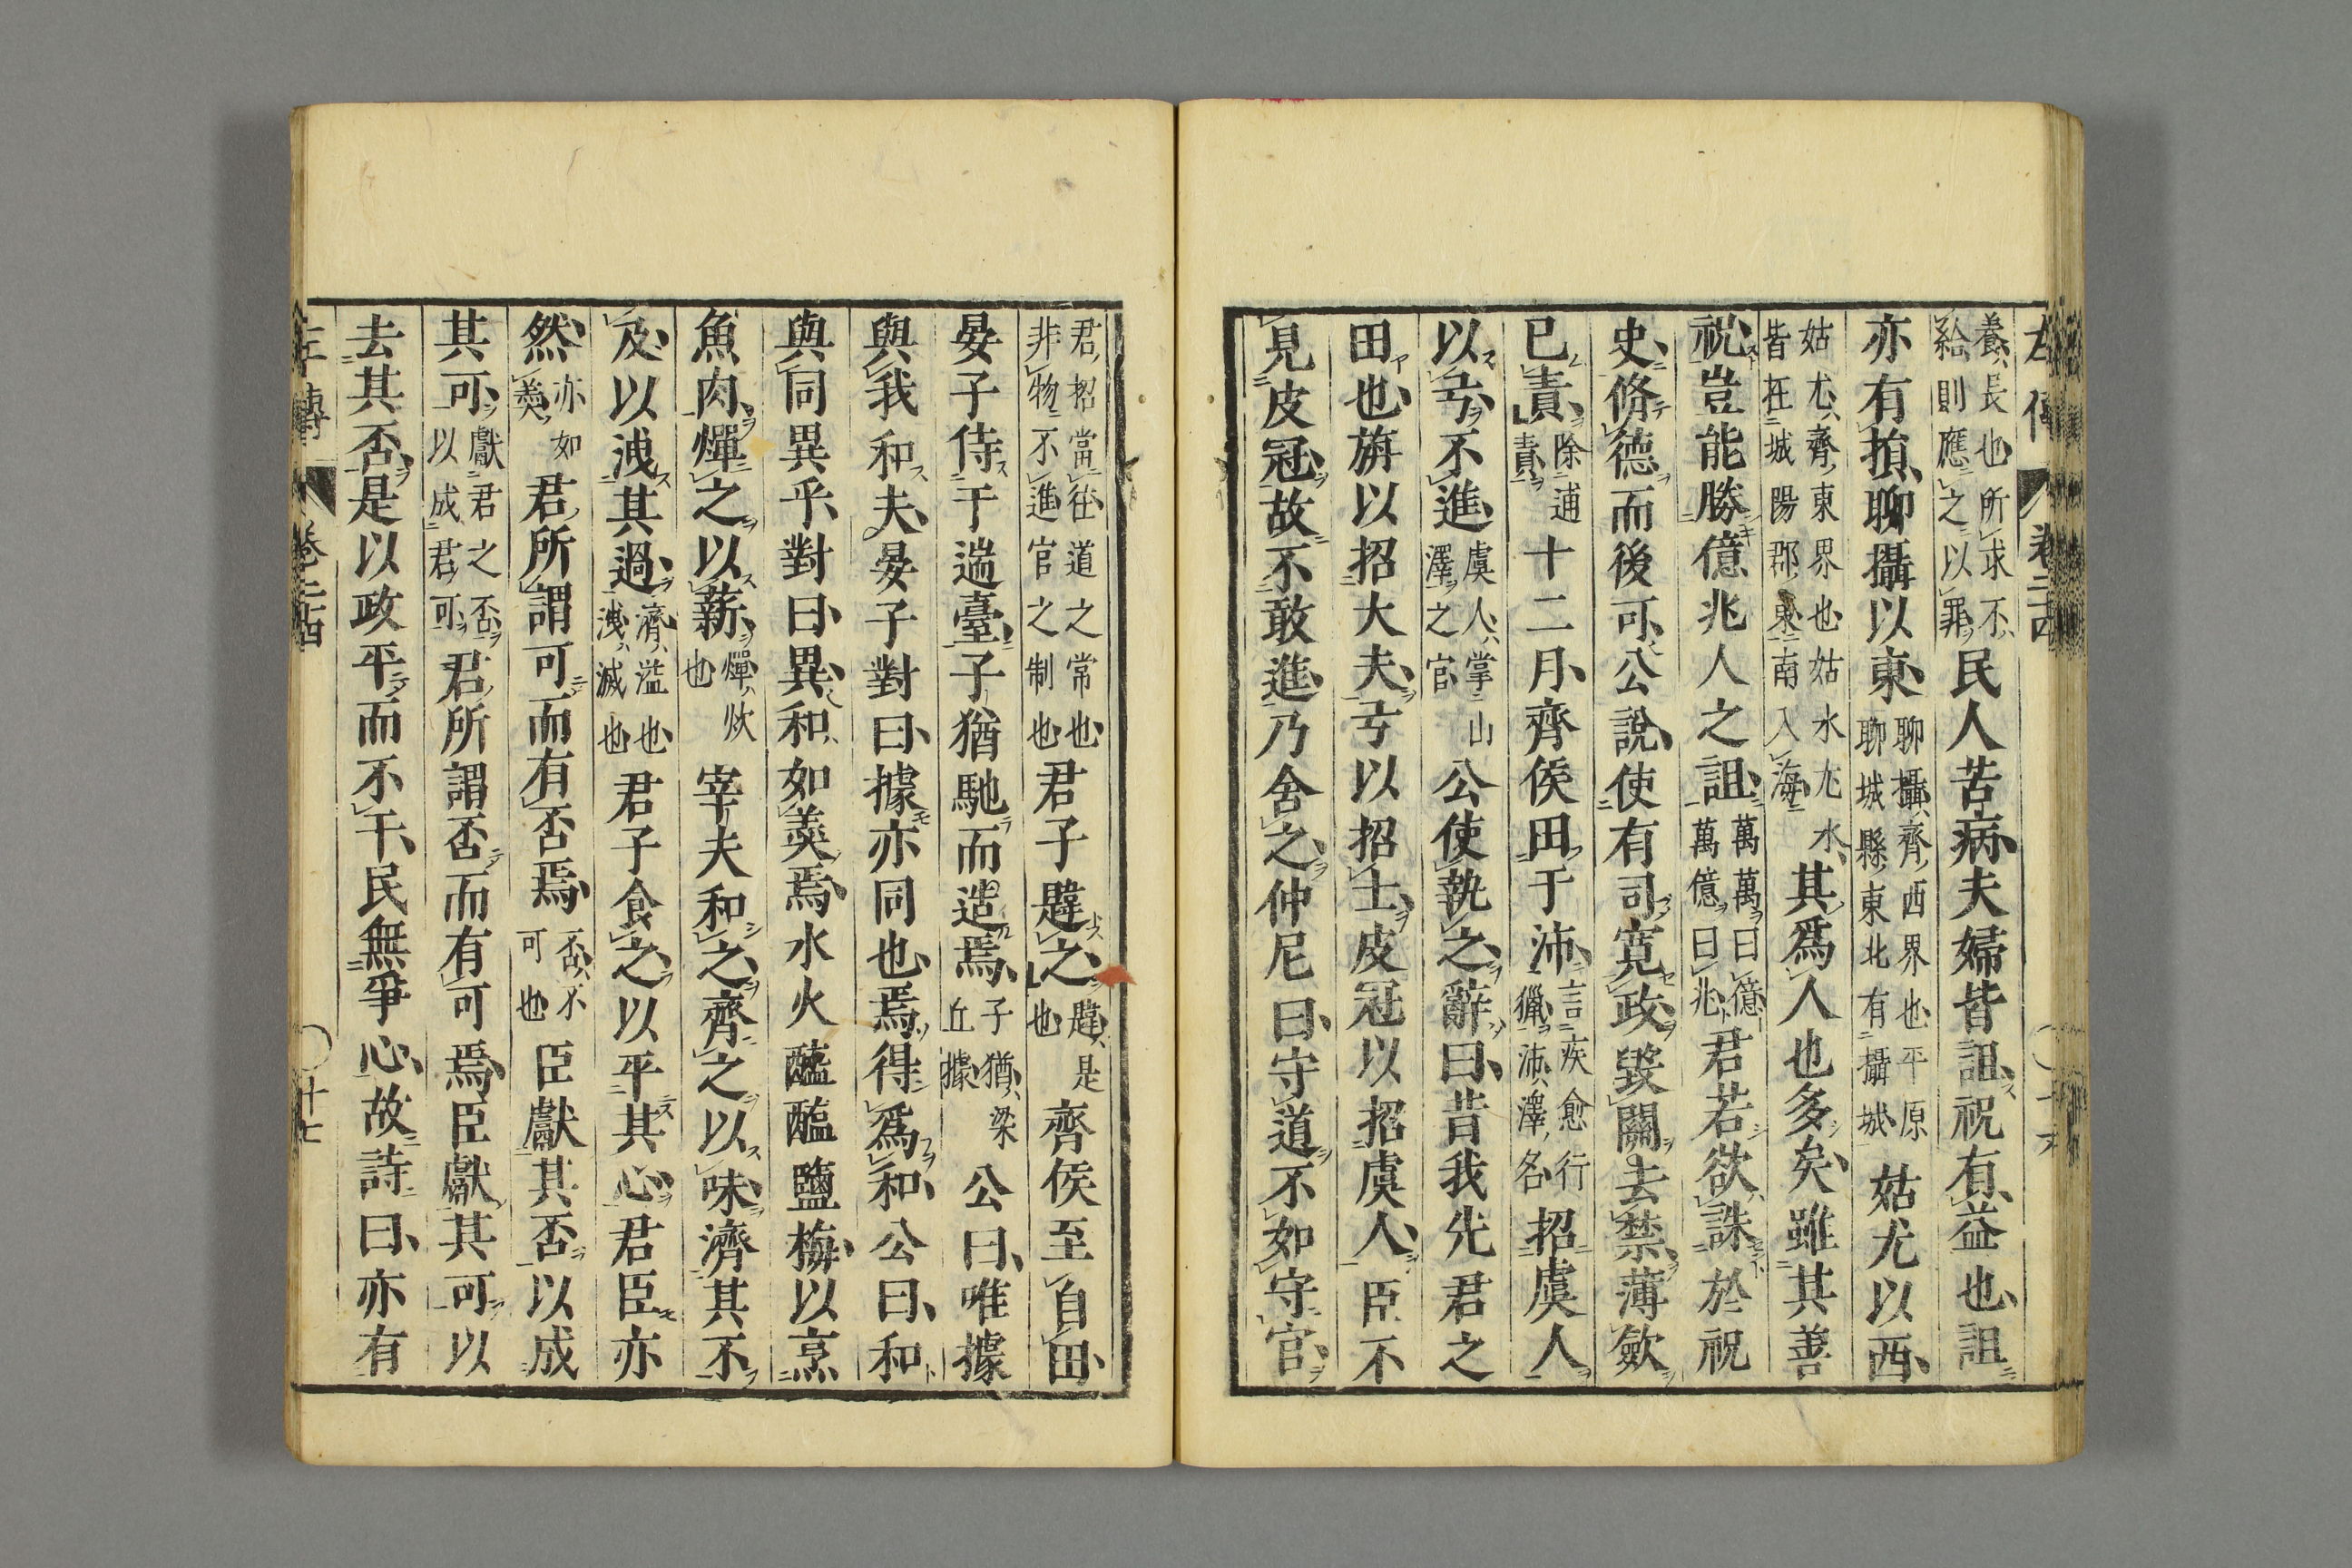 左傳 卷二十四
養長也所求不給則應之以罪民人苦病夫婦皆詛祝有益也詛
亦有損聊攝以東聊攝齊西界也平原聊城縣東北有攝城姑尤以西
姑尤齊東界也姑水尤水皆在城陽郡東南入海其爲人也多矣雖其善
祝豈能勝億兆人之詛萬萬曰億萬億曰兆君若欲誅於祝
史脩德而後可公說使有司寬政毀關去禁薄歛
已責除逋責十二月齊侯田于沛言疾愈行獵沛澤名招虞人
以弓不進虞人掌山澤之官公使執之辭曰昔我先君之
田也旃以招大夫弓以招士皮冠以招虞人臣不
見皮冠故不敢進乃舍之仲尼曰守道不如守官
君招當往道之常也非物不進官之制也君子韙之韙是也齊侯至自田
晏子侍于遄臺子猶馳而造焉子猶梁丘據公曰唯據
與我和夫晏子對曰據亦同也焉得爲和公曰和
與同異乎對曰異和如羹焉水火醯醢鹽梅以烹
魚肉燀之以薪燀炊也宰夫和之齊之以味濟其不
及以洩其過濟益也洩減也君子食之以平其心君臣亦
然亦如羹君所謂可而有否焉否不可也臣獻其否以成
其可獻君之否以成君可君所謂否而有可焉臣獻其可以
去其否是以政平而不干民無爭心故詩曰亦有
左傳 卷二十四 十七